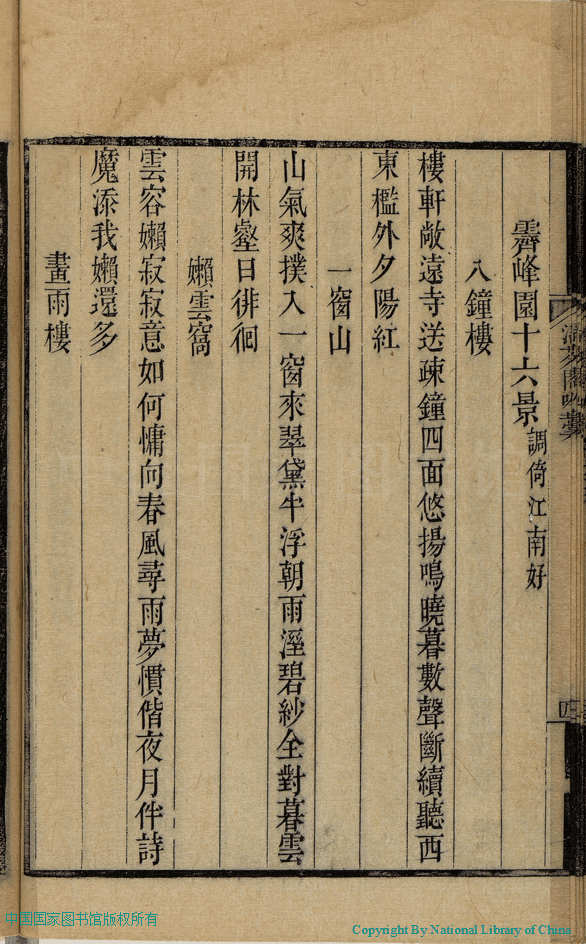 霽峰園十六景調倚江南好
八鐘樓
樓軒敞遠寺送疎鐘四面悠揚鳴曉暮數聲斷續聽西
東檻外夕陽紅
一窗山
山氣爽撲入一窗來翠黛半浮朝雨溼碧紗全對暮雲
開林壑日徘徊
嬾雲窩
雲容嬾寂寂意如何慵向春風尋雨夢慣偕夜月伴詩
魔添我嬾還多
畫雨樓
四
中国国家图书馆版权所有
Copyright By National Library of China